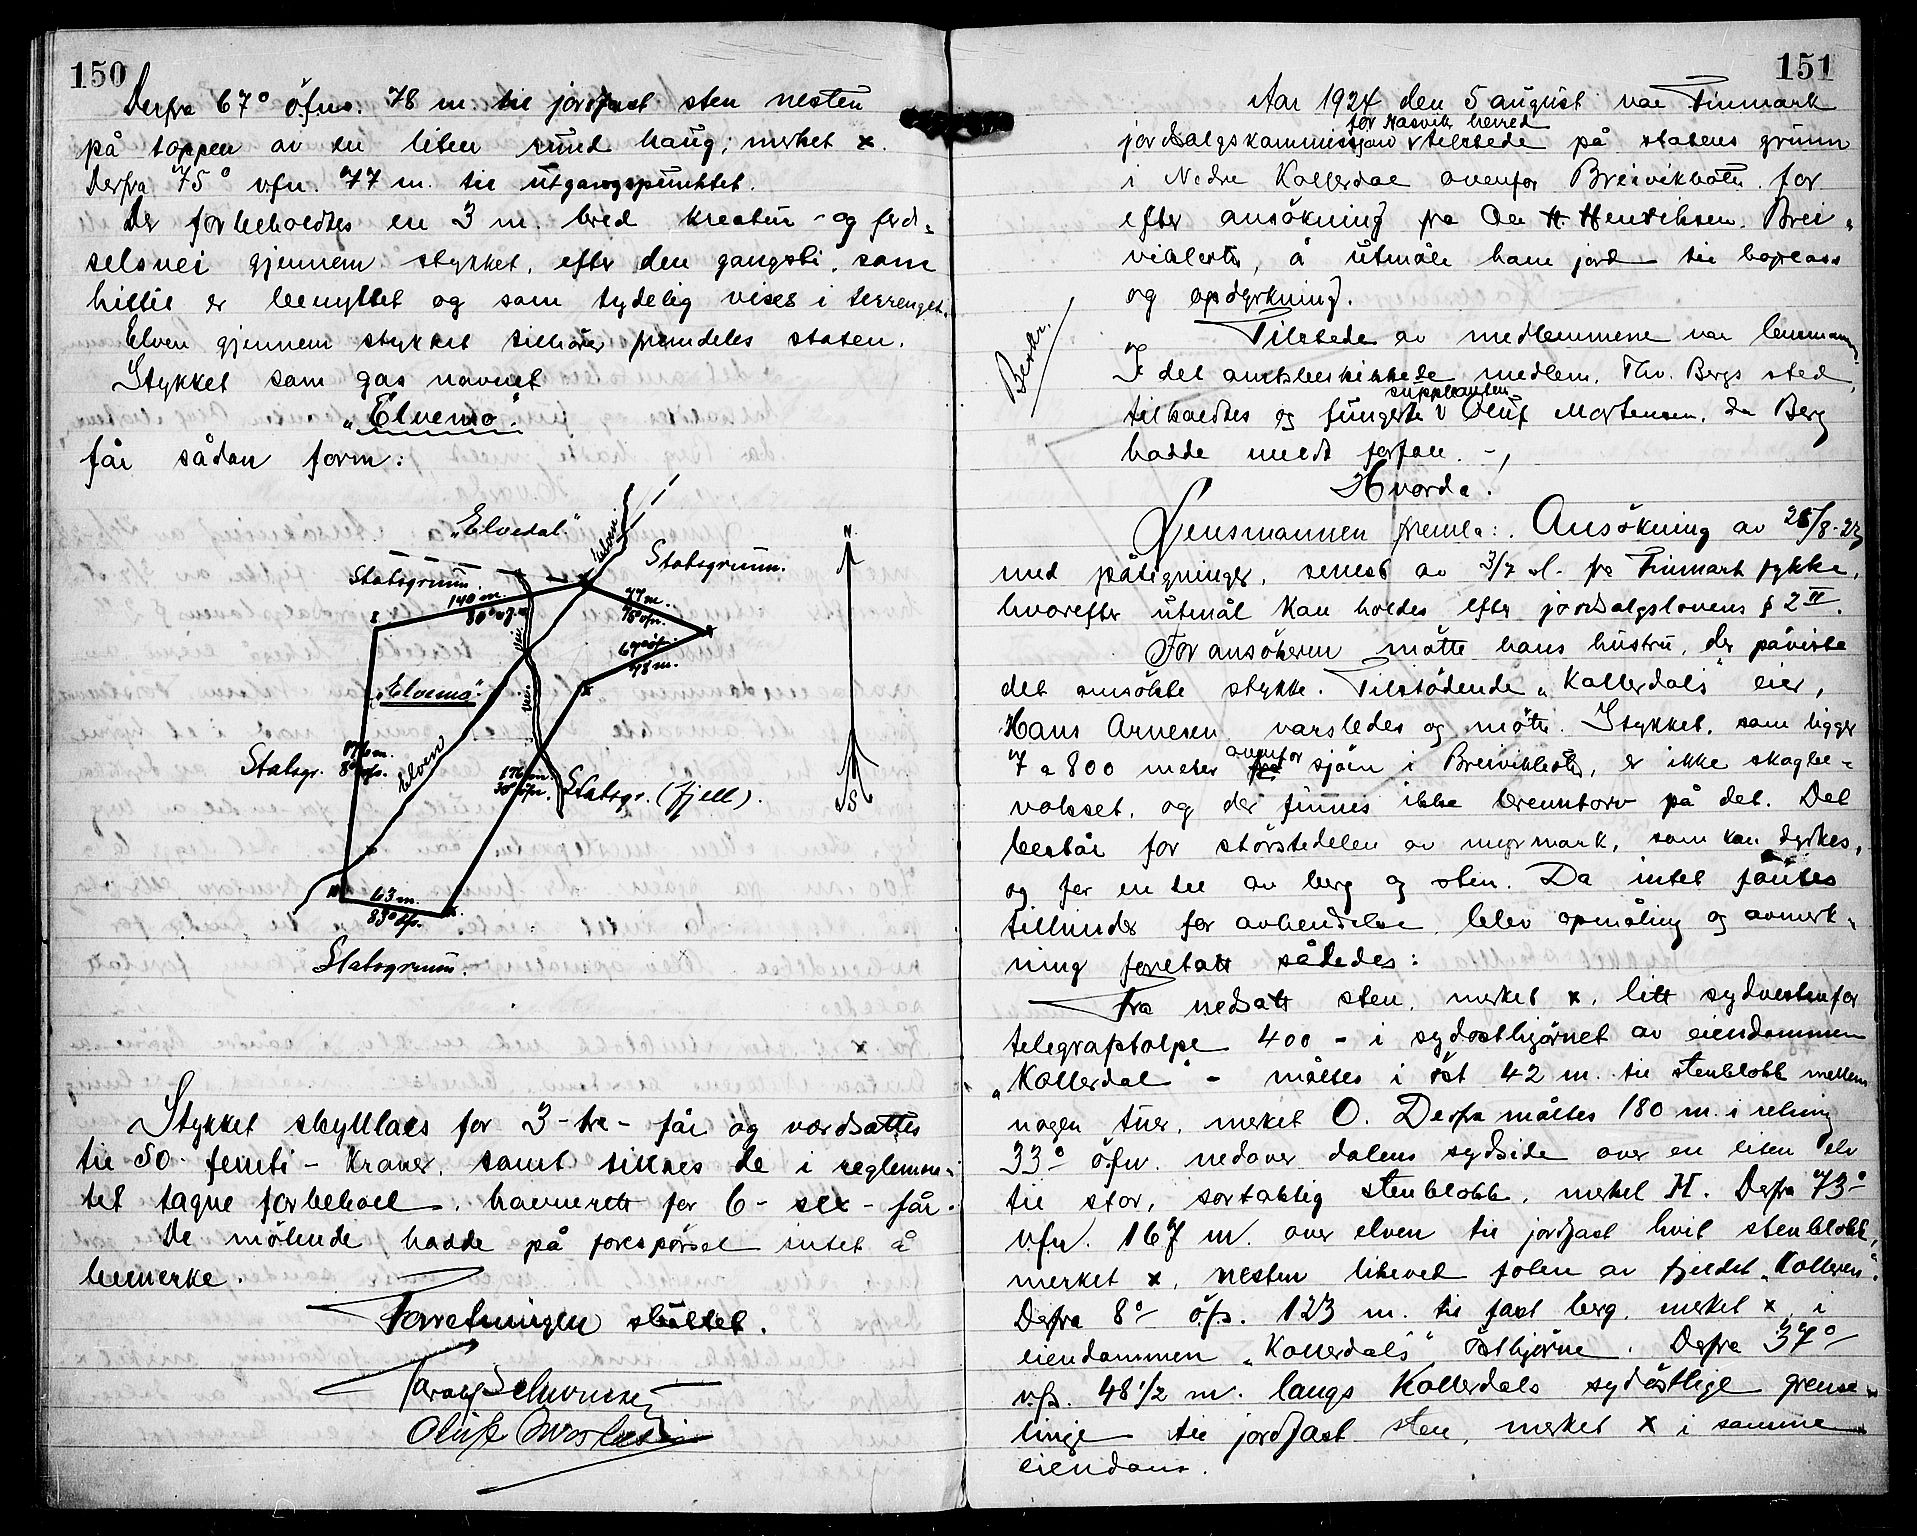 150
Derfra 67° ö.f.n. 78 m. til jordfast sten nesten
på toppen av en liten rund haug, merket x.
Derfra 75° v.f.n. 77 m. til utgangspunktet.
Der forbeholdtes en 3 m. bred kreatur- og ferd-
selsvei gjennem stykket, efter den gangsti, som
hittil er benyttet og som tydelig vises i terrenget.
Elven gjennem stykket tilhører fremdeles staten.
Stykket som gas navnet
"Elvemo"
får sådan form:
"Elvedal"
Elven
Statsgrunn.
Statsgrunn.
140 m.
80°
77 m.
75° v.f.n.
67° ö.f.n.
78 m.
Vei
"Elvemo"
Vei
Statsgr.
Elven
176 m.
Statsgr. (fjell).
63 m.
83° ö.f.s.
Statsgrunn.
N
S
Stykket skyldlaes for 3 - tre - får og verdsattes
til 50 - femti - kroner, samt sikres de i reglemen-
tet tagne forbehoel, havnerett for 6 - sex - får.
De mötende hadde på forespörsel intet å
bemerke.
Forretningen sluttet.
151
Aar 1924 den 5 august var Finmark
for Hasvik herred
jordsalgskommissjon v tilstede på statens grunn
i Nedre Kollerdal ovenfor Breivikbotn for
efter ansökning fra Ole H. Henriksen, Brei-
vikbotn, å utmåle ham jord til boplass
og opdyrkning.
Tilstede av medlemmene var lensmannen
Bestr.
og
I det amtsbeskikkede medlem, Thv. Bergs sted,
suppleanten
tilkaldtes og fungerte v Oluf Mortensen, da Berg
hadde meldt forfall. -,
Hvorda.
Lensmannen fremla: Ansökning av 25/8-23
med påtegninger, senest av 3/7 d. fra Finmark fylke,
hvorefter utmål kan holdes efter jordsalgslovens § 2 II.
For ansökeren mötte hans hustru, der påviste
det ansökte stykke. Tilstödende "Kollerdals" eier,
Hans Arnesen varsledes og mötte. Stykket, som ligger
ovenfor
7 a 800 meter fra sjöen i Breivikbotn, er ikke skogbe-
vokset, og der finnes ikke brenntorv på det. Det
består for störstedelen av myrmark, som kan dyrkes,
og for en del av berg og sten. Da intet fantes
tilhinder for avhendelse, blev opmåling og avmerk-
ning foretatt således:
Fra nedsatt sten, merket x, litt sydvestenfor
telegrafstolpe 400 - i sydosthjörnet av eiendommen
"Kollerdal" - måltes i öst 42 m. til stenblokk mellem
nogen tuer, merket O. Derfra måltes 180 m. i retning
33° ö.f.n. nedover dalens sydside over en liten elv
til stor, sortaktig stenblokk, merket H. Derfra 73°
v.f.n. 167 m. over elven til jordfast hvit stenblokk,
merket x, nesten likeved foten av fjeldet "Kolleren".
Derfra 8° ö.f.s. 123 m. til fast berg, merket x, i
eiendommen "Kollerdals" östhjörne. Derfra 37°
v.f.s. 48 1/2 m. langs Kollerdals sydöstlige grense-
linje til jordfast sten, merket x i samme
eiendom.